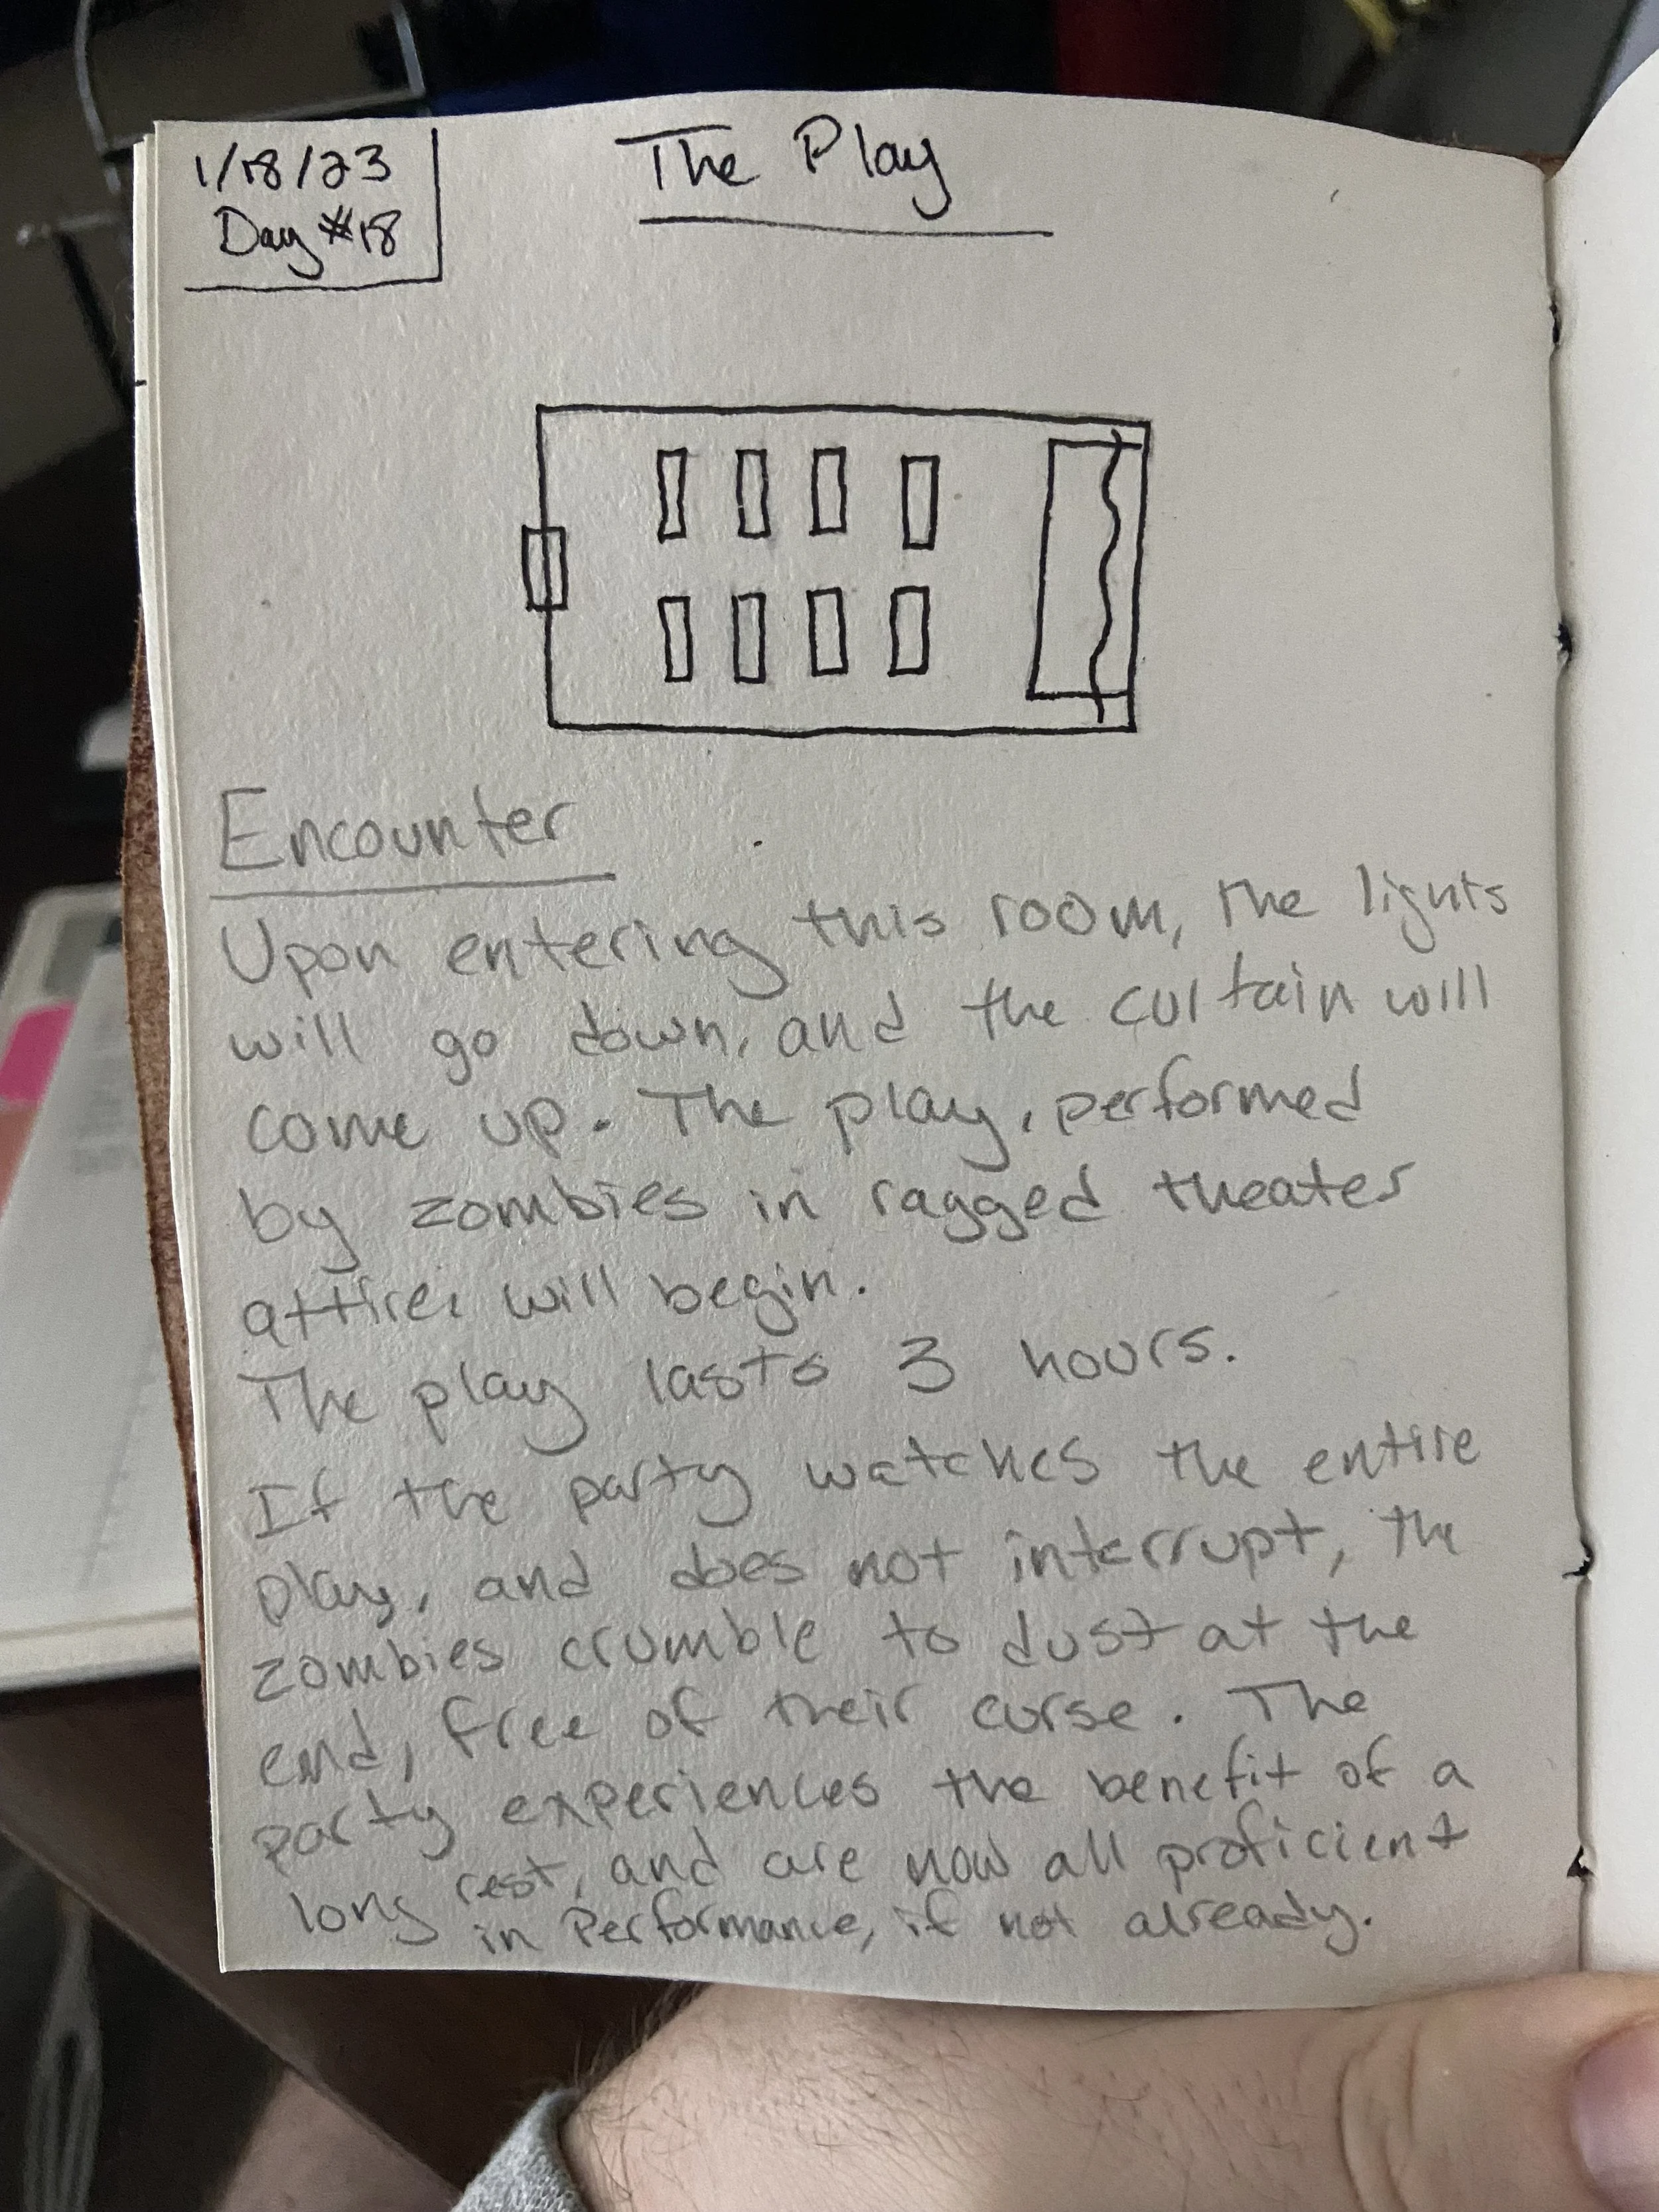 1/18/23
Day #18
The Play
Encounter
Upon entering this room, the lights
will go down, and the curtain will
come up. The play, performed
by zombies in ragged theater
attire, will begin.
The play lasts 3 hours.
If the party watches the entire
play, and does not interrupt, the
zombies crumble to dust at the
end, free of their curse. The
party experiences the benefit of a
long rest, and are now all proficient
in Performance, if not already.